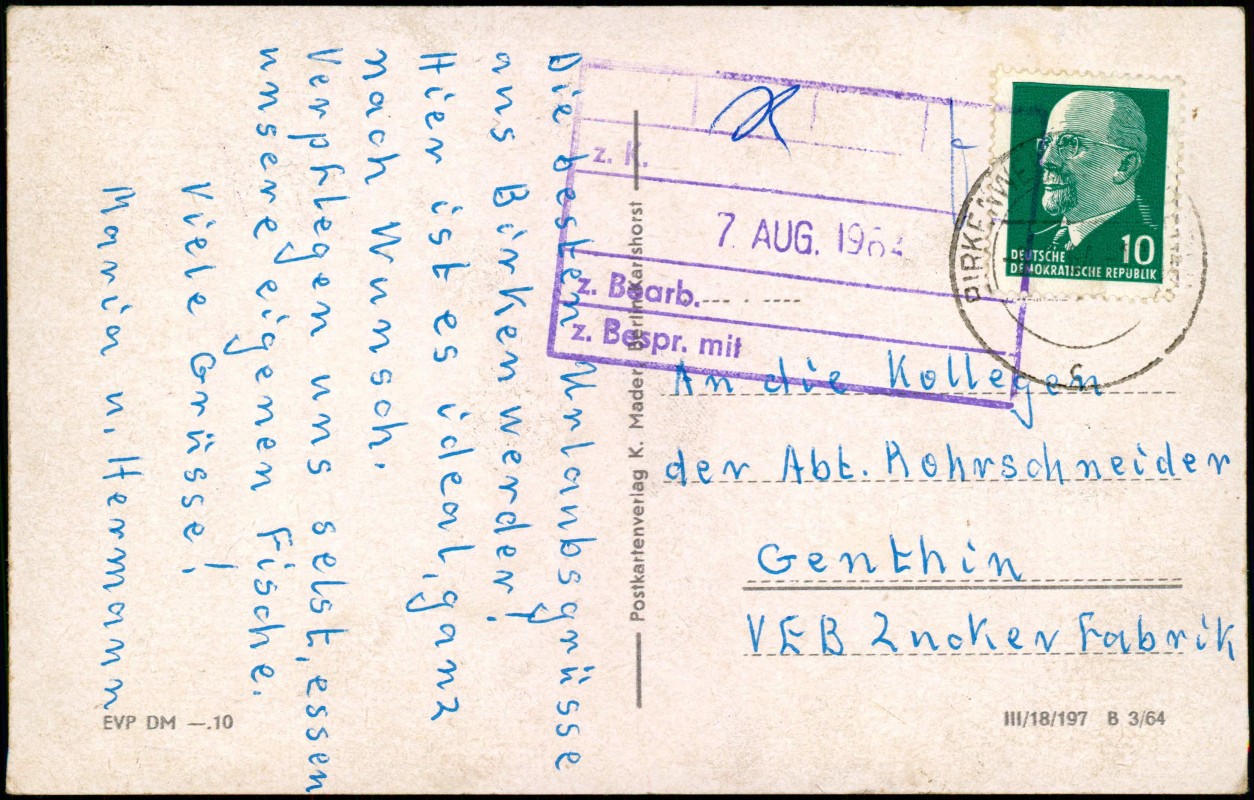 Die besten Urlaubsgrüsse
aus Birkenwerder!
Hier ist es ideal, ganz
nach Wunsch.
Verpflegen uns selst, essen
unsere eigenen Fische.
Viele Grüsse!
Maria u. Hermann
EVP DM —.10
Postkartenverlag K. Mader, Berlin-Karlshorst
z. K.
7. AUG. 1964
z. Bearb.
z. Bespr. mit
10
DEUTSCHE
DEMOKRATISCHE REPUBLIK
An die Kollegen
der Abt. Rohrschneider
Genthin
VEB Zucker Fabrik
III/18/197 B 3/64